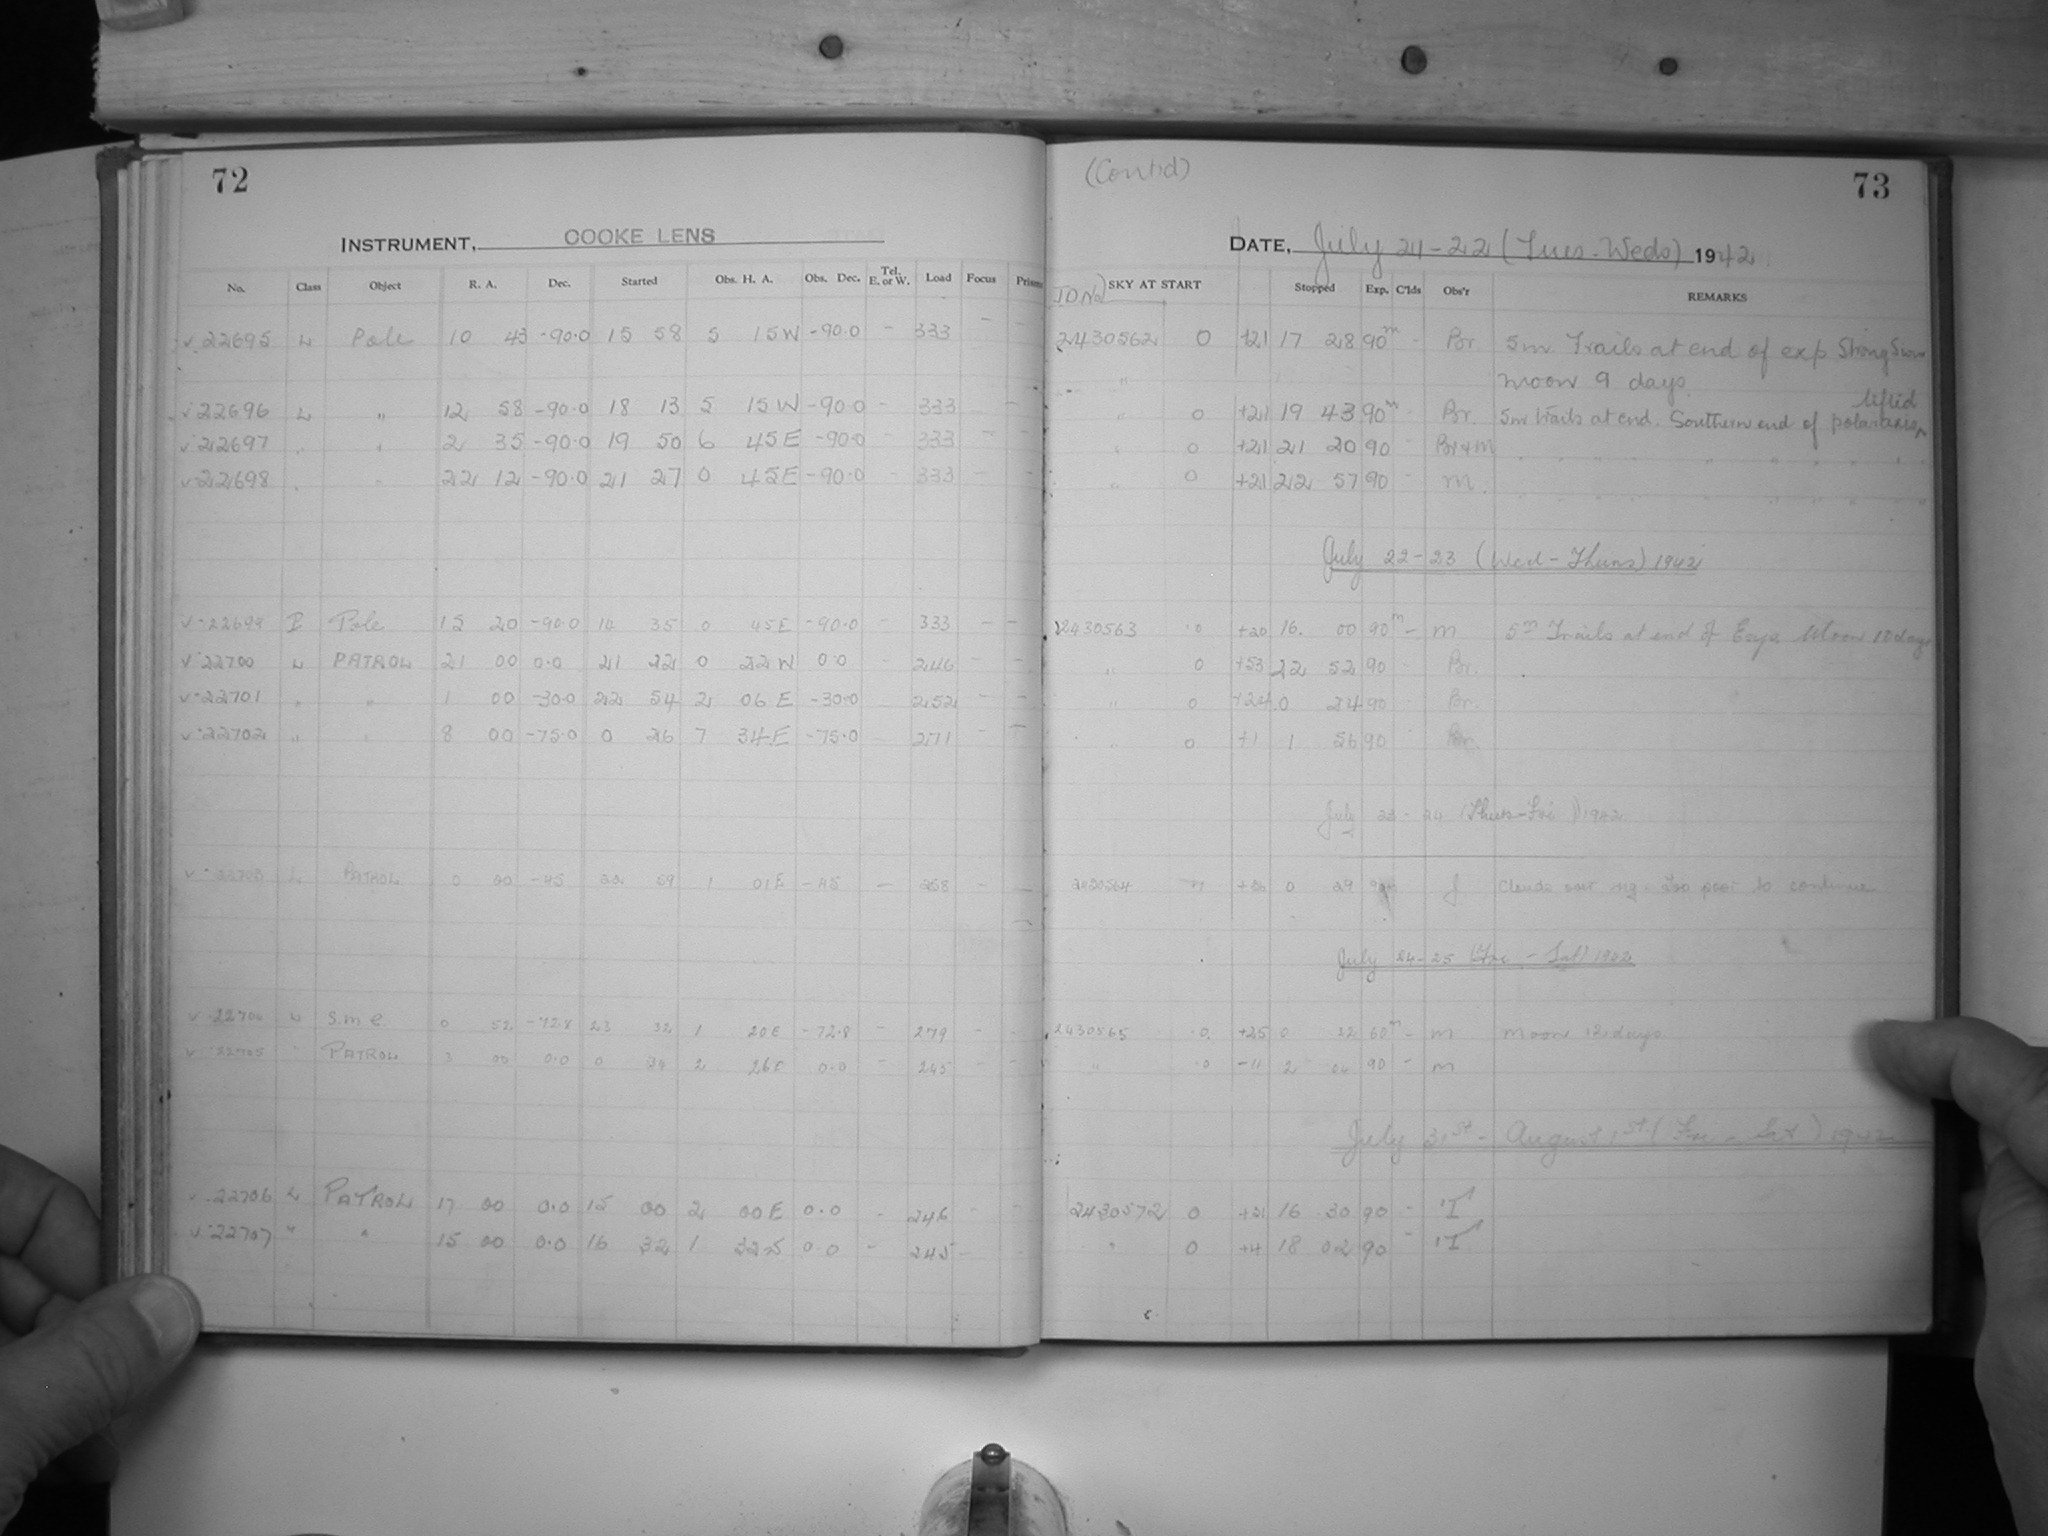 72
INSTRUMENT, COOKE LENS
No. Class Object R. A. Dec. Started Obs. H. A. Obs. Dec. Tel. E. or W. Load Focus Prism
22695 L Pole 10 43 -90.0 15 58 5 15W -90.0 - 333 - -
22696 L " 12 58 -90.0 18 13 5 15W -90.0 - 333 - -
22697 " " 2 35 -90.0 19 50 6 45E -90.0 - 333 - -
22698 " " 22 12 -90.0 21 27 0 45E -90.0 - 333 - -
22699 Pole 15 20 -90.0 14 35 0 45E -90.0 - 333 - -
22700 L PATROL 21 00 0.0 21 22 0 22W 0.0 - 246 - -
22701 " " 1 00 -30.0 22 54 2 06E -30.0 252 - -
22702 " " 8 00 -75.0 0 26 7 34E -75.0 - 271 - -
22703 L PATROL 0 00 -45 22 59 1 01E -45 - 258 - -
22704 L S.m.C. 0 52 -72.8 23 32 1 20E -72.8 - 279 - -
22705 " PATROL 3 00 0.0 0 34 2 26E 0.0 - 245 - -
22706 L PATROL 17 00 0.0 15 00 2 00E 0.0 - 246 - -
22707 " " 15 00 0.0 16 32 1 0.0 - 245 -
(Cont'd)
73
DATE, July 21-22 (Tues-Weds) 1942
J D No SKY AT START Stopped Exp. C'lds Obs'r REMARKS
2430562 0 +21 17 28 90m - Br 5m Trails at end of exp Strong
" moon 9 days
" 0 +21 19 43 90m - Br. 5m trails at end. Southern end of polar axis lifted
" 0 +21 21 20 90 - Br+M " " " "
" 0 +21 22 57 90 - M. " " " "
July 22-23 (Wed-Thurs) 1942
2430563 0 +20 16 00 90m - M 5m Trails at end of Exp. Moon 10 days
" 0 +53 22 52 90 - Br.
" 0 +24 0 24 90 - Br.
" 0 +1 1 56 90 - Br.
July 23-24 (Thurs-Fri) 1942
2430564 0 29 90 J Clouds too poor to continue
July 24-25 (Fri-Sat) 1942
2430565 0 +25 0 32 60m - M Moon 12 days
" 0 -11 2 04 90 - M
July 31st - August 1st (Fri-Sat) 1942
2430572 0 +21 16 30 90 -
" 0 +4 18 02 90 -